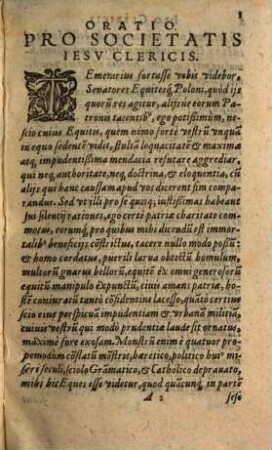 ORATIO
PRO SOCIETATIS
IESV CLERICIS.
TEmerarius fortasse vobis videbor,
Senatores Equitesq́; Poloni, quod ijs
quorũ res agitur, alijsue eorum Pa-
tronis tacentib', ego potissimum, ne-
scio cuius Equitis, quem nemo forte vestrũ vnquã
in equo sedentẽ vidit, stultã loquacitatẽ & maxima
atq; impudentissima mendacia refutare aggrediar,
qui neq; authoritate, neq; doctrina, & eloquentia, cũ
alijs qui hanc caussam apud vos dicerent sim compa-
randus. Sed vt illi pro se quiq; iustissimas habeant
sui silentij rationes, ego certè patriæ charitate com-
motus, eorumq́; pro quibus mihi dicendũ est immor-
talib' beneficijs cõstrictus, tacere nullo modo possũ:
& homo cordatus, puerili larua obtectũ homulum,
multorũ gnarus bellorũ, equitẽ ex omni generosorũ
equitũ manipulo expunctũ, ciuis amans patriæ, ho-
stẽ coniuratũ tantò cõfidentius lacesso, quãto certius
scio eius perspicuã impudentiam & vrbanã militiã,
cuiuis vestrũ qui modò prudentiæ laude sit ornatus,
maximè fore exosam. Monstrũ enim è quatuor pro-
pemodum cõflatũ mõstris, hæretico, politico hui' mi-
seri seculi, sciolo Grãmatico, & Catholico deprauato,
mihi hic Eques esse videtur, quod quãcunq; in partẽ
A 2 sese